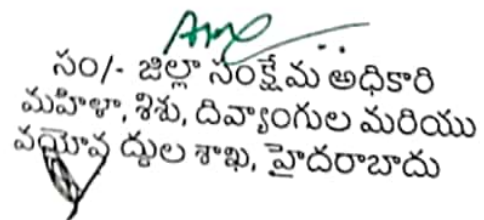 సం/- జిల్లా సంక్షేమ అధికారి
మహిళా, శిశు, దివ్యాంగుల మరియు
వయోవ ద్ధుల శాఖ, హైదరాబాదు